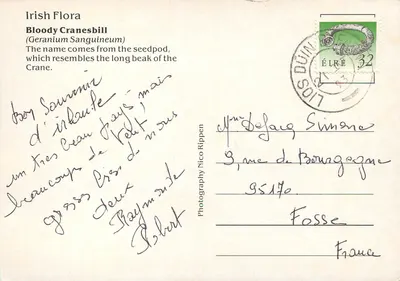 Irish Flora
Bloody Cranesbill
(Geranium Sanguineum)
The name comes from the seedpod,
which resembles the long beak of the
Crane.
Bon Souvenir
d'irlande
un très beau pays mais
beaucoup de Vent!
gros de nous
deux
Raymonde
Robert
Photography Nico Rippen
LIOS DÚIN
21
ÉIRE 32
Mme Defacq Simone
9, rue de Bourgogne
95170.
Fosse
France